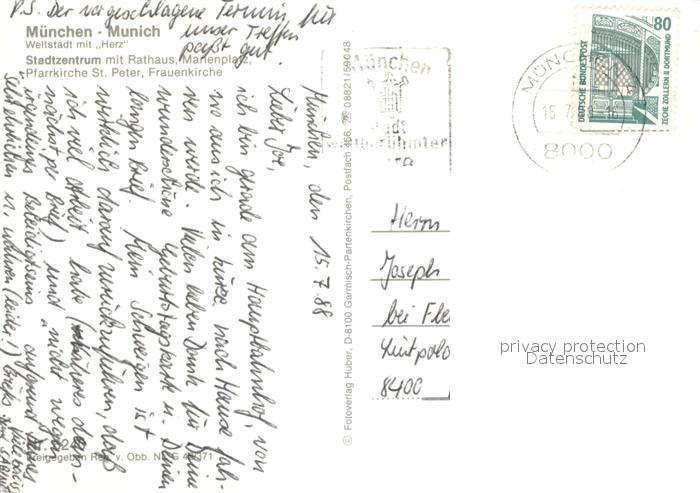 P.S. Der vorgeschlagene Termin für
unser Treffen
paßt gut.
München - Munich
Weltstadt mit „Herz"
Stadtzentrum mit Rathaus, Marienplatz,
Pfarrkirche St. Peter, Frauenkirche
München, den 15.7.88
Lieber Joe,
ich bin gerade am Hauptbahnhof, von
wo aus ich in Kürze nach Hause fah-
ren werde. Vielen lieben Dank für Deine
wunderschöne Geburtstagskarte u. Deinen
langen Brief. Mein Schweigen ist
wirklich darauf zurückzuführen, daß
ich viel Arbeit habe (näheres dem-
nächst per Brief) und „nicht wegen
Beleidigtseins aufgrund Deines
u. wahren (leider!)
Freigegeben Reg. v. Obb. Nr. G
© Fotoverlag Huber, D-8100 Garmisch-Partenkirchen, Postfach 466, ☎ 08821/59048
München
Stadt
weltberühmter
80
DEUTSCHE BUNDESPOST
ZECHE ZOLLERN II DORTMUND
MÜNCHEN
15.7.
8000
Herrn
Joseph
bei
Luitpold
8400
privacy protection
Datenschutz